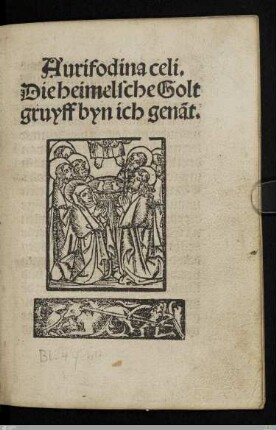 Aurifodina celi.
Die heimelsche Golt
gruyff byn ich genāt.